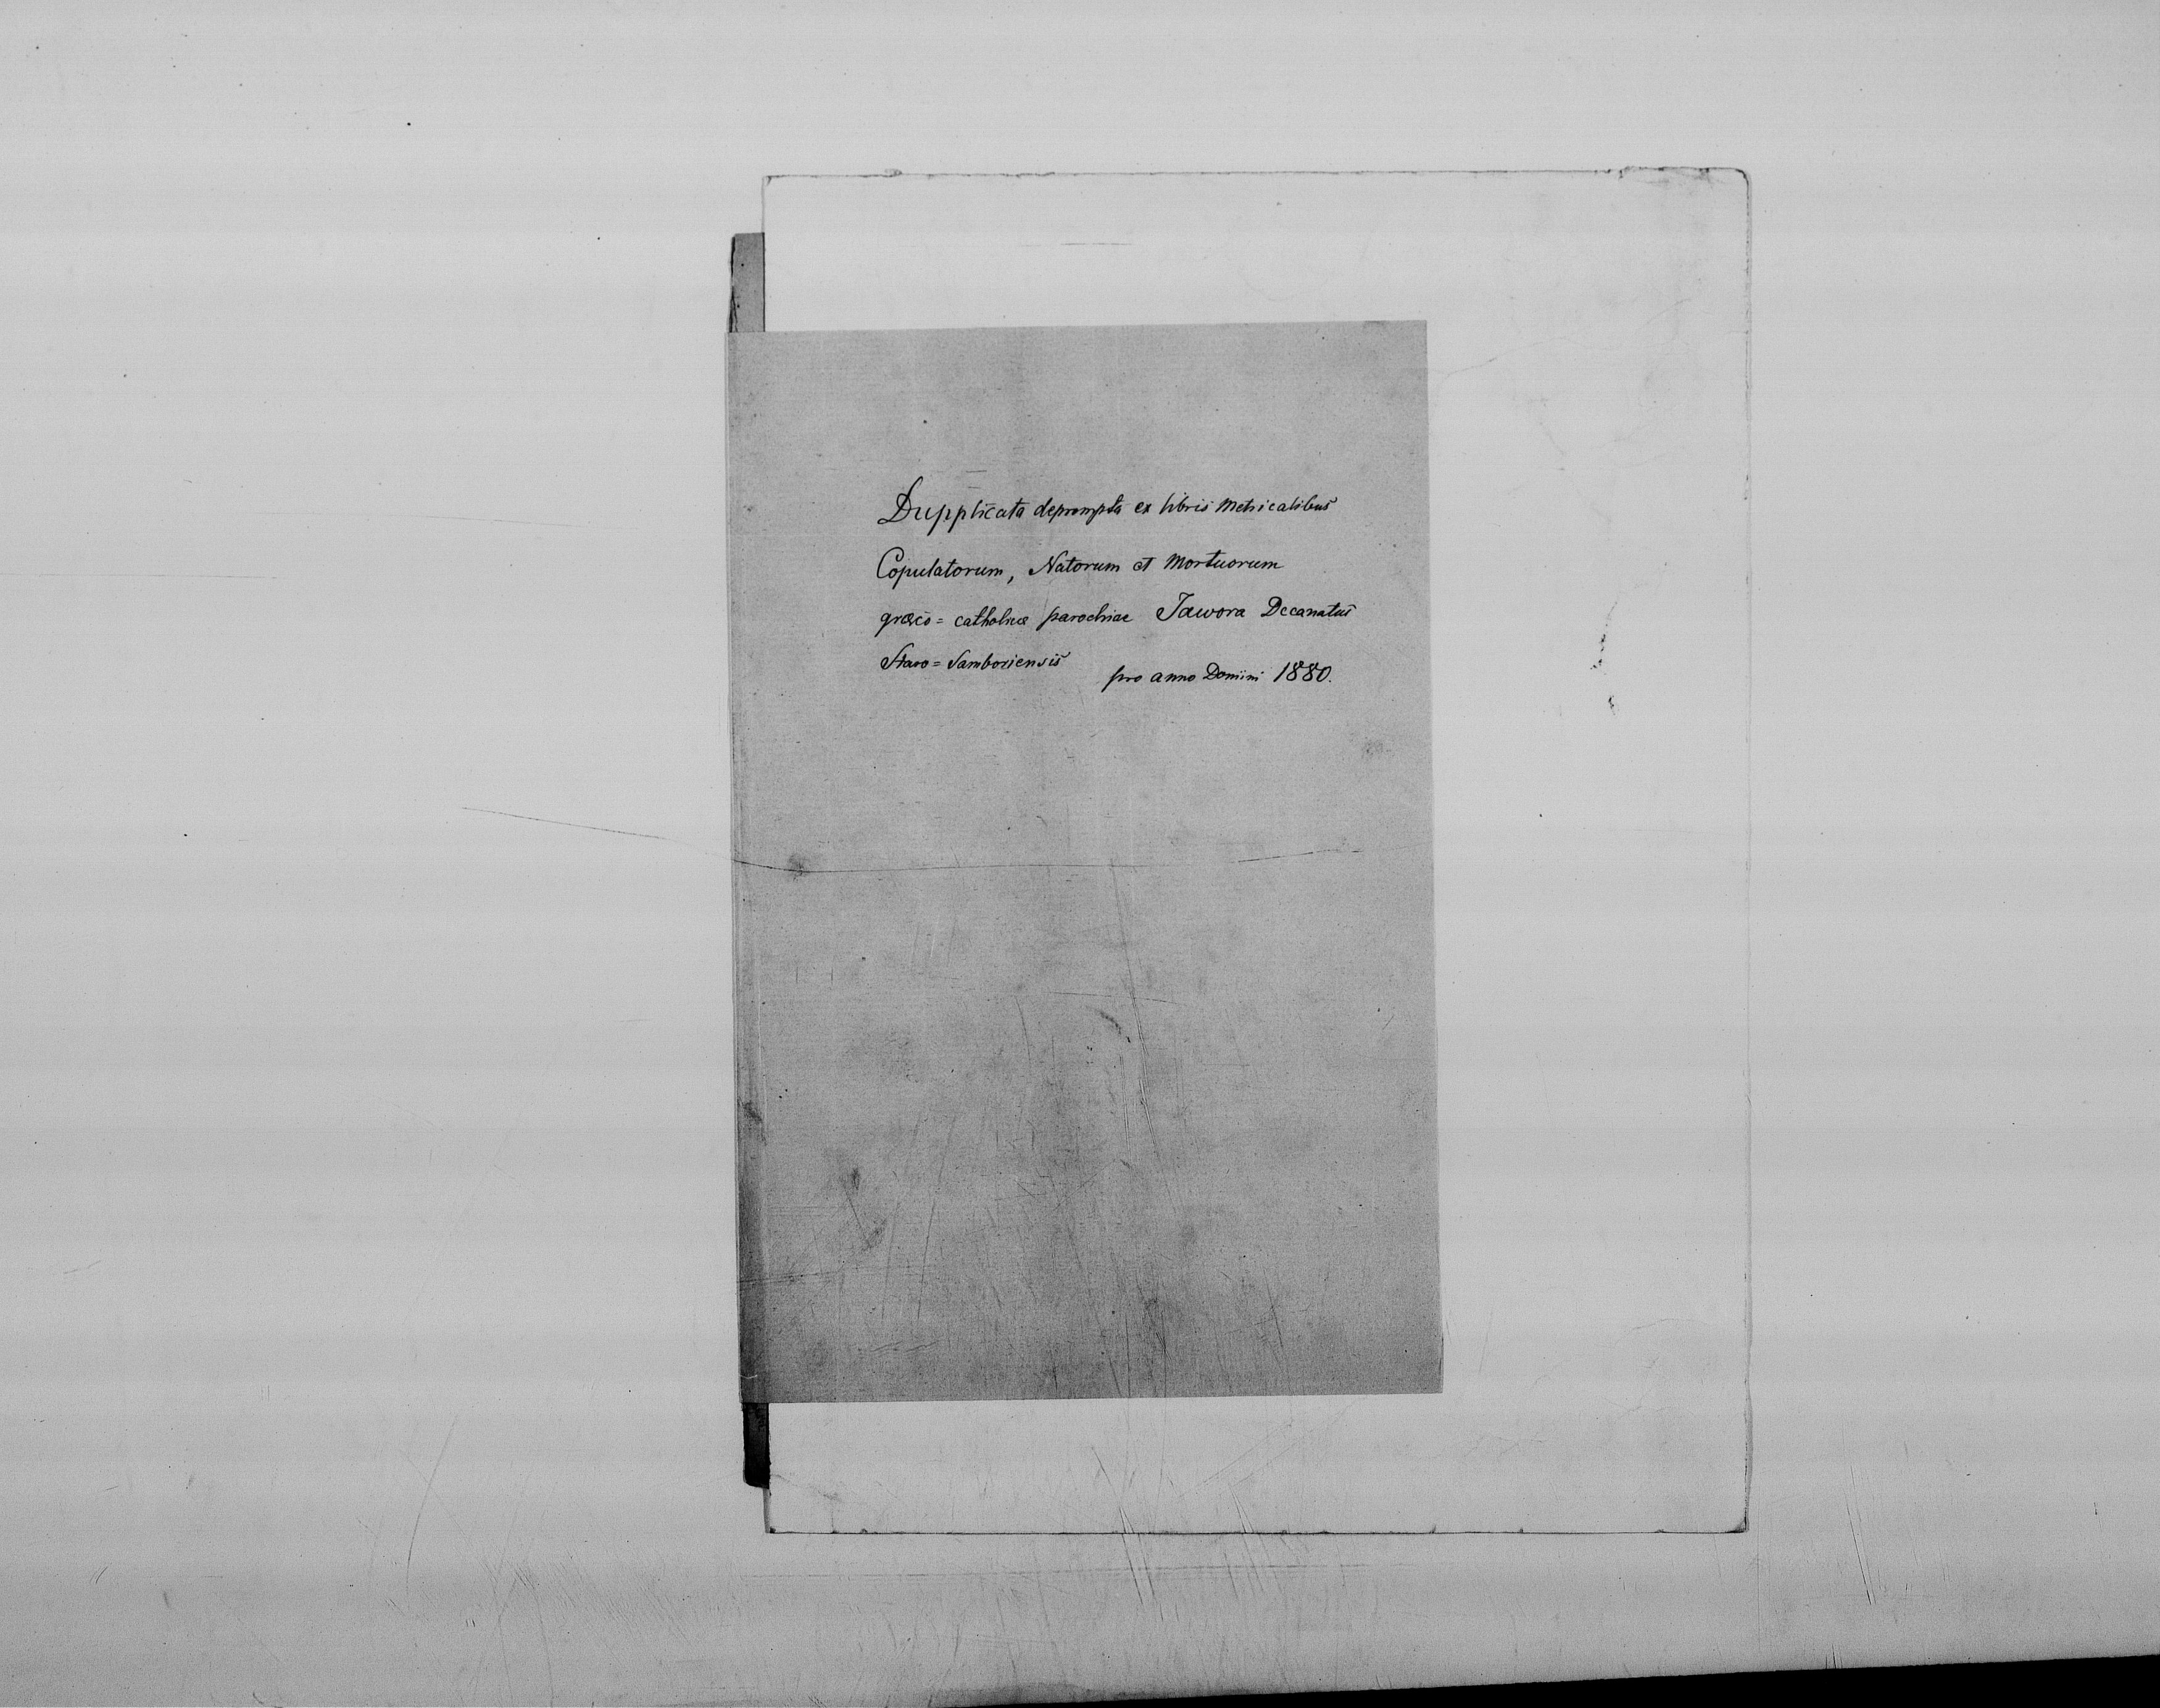 Dupplicata deprompta ex libris Metricalibus
Copulatorum, Natorum et Mortuorum
græco=catholicæ parochiae Jawora Decanatus
Staro=Samboriensis
pro anno Domini 1880.